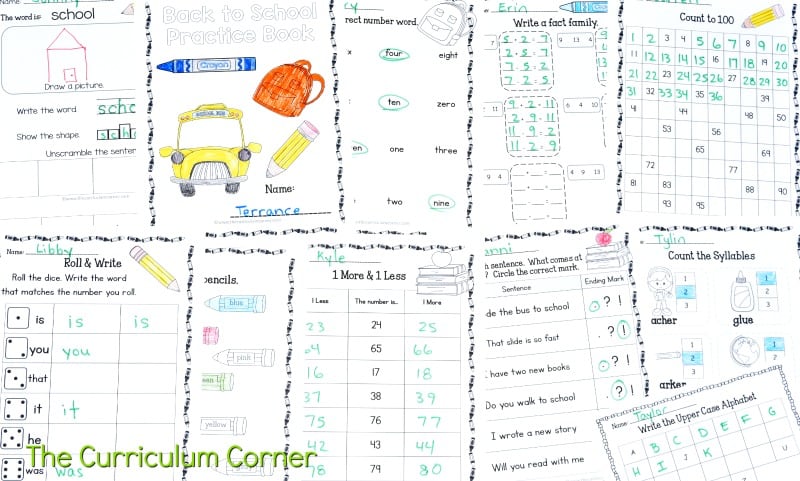 Name:
The word is school
Draw a picture.
Write the word scho
Show the shape. s c h
Unscramble the senten
Back to School
Practice Book
Crayon
SCHOOL BUS
Name:
Terrance
cy
rect number word.
four eight
ten zero
en one three
two nine
Erin
Write a fact family.
5 . 2 . 7
2 . 5 . 7
7 . 5 . 2
7 . 2 . 5
9 13 4
9 . 2 . 11
2 . 9 . 11
11 . 9 . 2
11 . 2 . 9
6 4 10
4 9 13
Count to 100
1 2 3 4 5 6 7 8 9 10
11 12 13 14 15 16 17 18 19 20
21 22 23 24 25 26 27 28 29 30
31 32 33 34 35 36 39
4 44 48 50
53 56
65 69
72 77
81 88 90
93 95
Name: Libby
Roll & Write
Roll the dice. Write the word
that matches the number you roll.
is is is
you you
that
it it
he
was was
pencils.
blue
pink
yellow
Kyle
1 More & 1 Less
1 Less The number is... 1 More
23 24 25
64 65 66
16 17 18
37 38 39
75 76 77
42 43 44
78 79 80
nni
h sentence. What comes at
? Circle the correct mark.
Sentence Ending Mark
de the bus to school . ? !
That slide is so fast . ? !
have two new books . ? !
Do you walk to school . ? !
I wrote a new story
Will you read with me
Tylin
Count the Syllables
1
2
3
1
2
3
acher glue
1
2
3
1
2
3
arker
Name: Taylor
Write the Upper Case Alphabet
A B C D E F G
H I J K
U
The Curriculum Corner